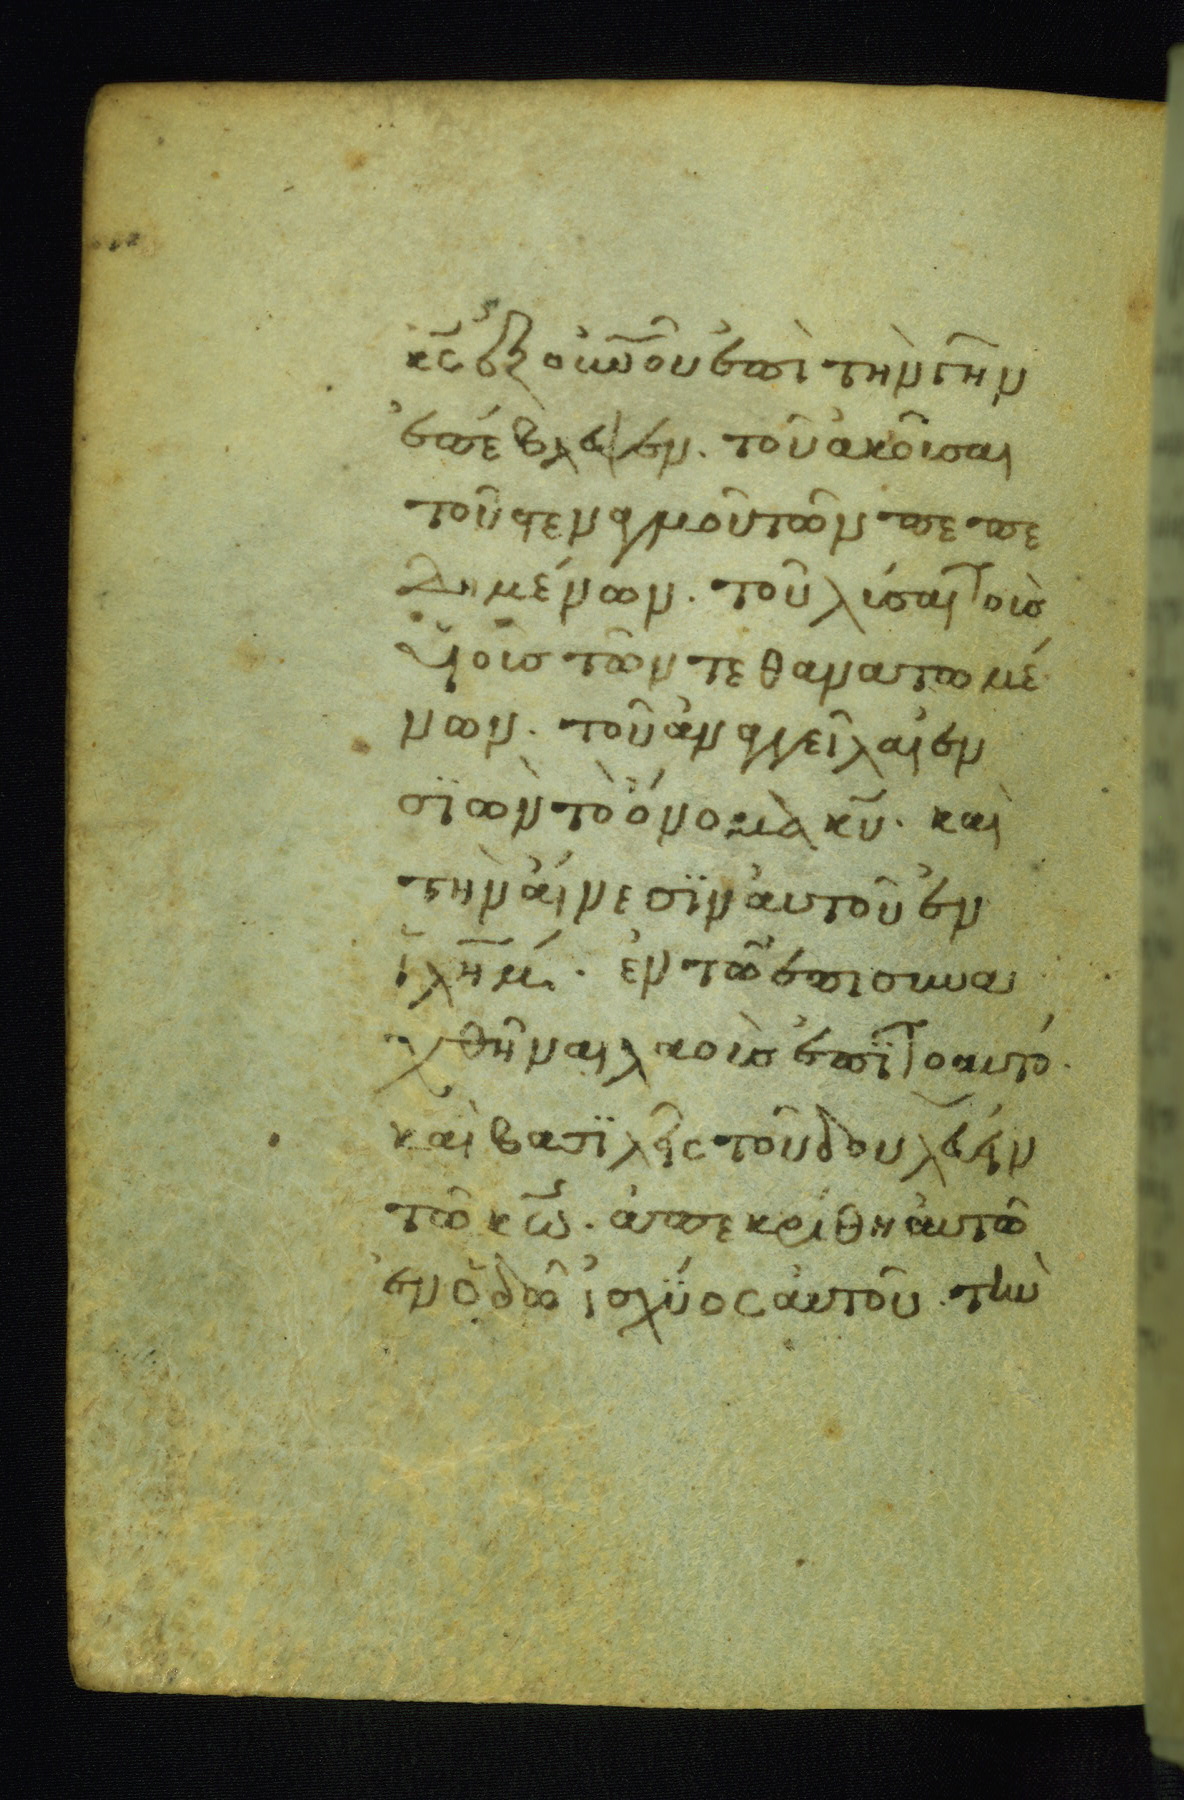 κ̅ς̅ ἐξ οὐ̅ν̅οῦ ἐπὶ τὴν γῆν
ἐπέβλεψεν. τοῦ ἀκοῦσαι
τοῦ στεναγμοῦ τῶν πεπε
διμένων. τοῦ λῦσαι τοὺσ
ὑιοὺσ τῶν τεθανατωμέ
νων. τοῦ ἀναγγεῖλαι ἐν
σϊὼν τὸ ὄνομα κ̅υ̅. καὶ
τὴν αἴνεσϊν ἀυτοῦ ἐν
ϊλ̅η̅μ̅. ἐν τῶ ἐπισυνα
χθῆναι λαοὺσ ἐπῒ τοαυτό.
καὶ βασϊλεῖς τοῦ δουλεύειν
τῶ κ̅ω̅. ἀπεκρίθη ἀυτῶ
ἐν ὁδῶ ἰσχΰος ἀυτοῦ. τὴν